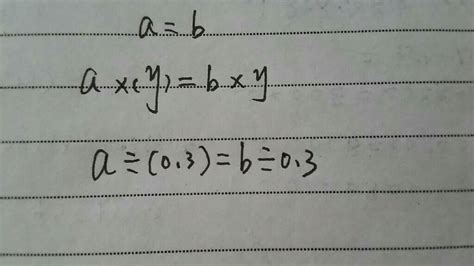 a = b
a × (y) = b × y
a ÷ (0.3) = b ÷ 0.3